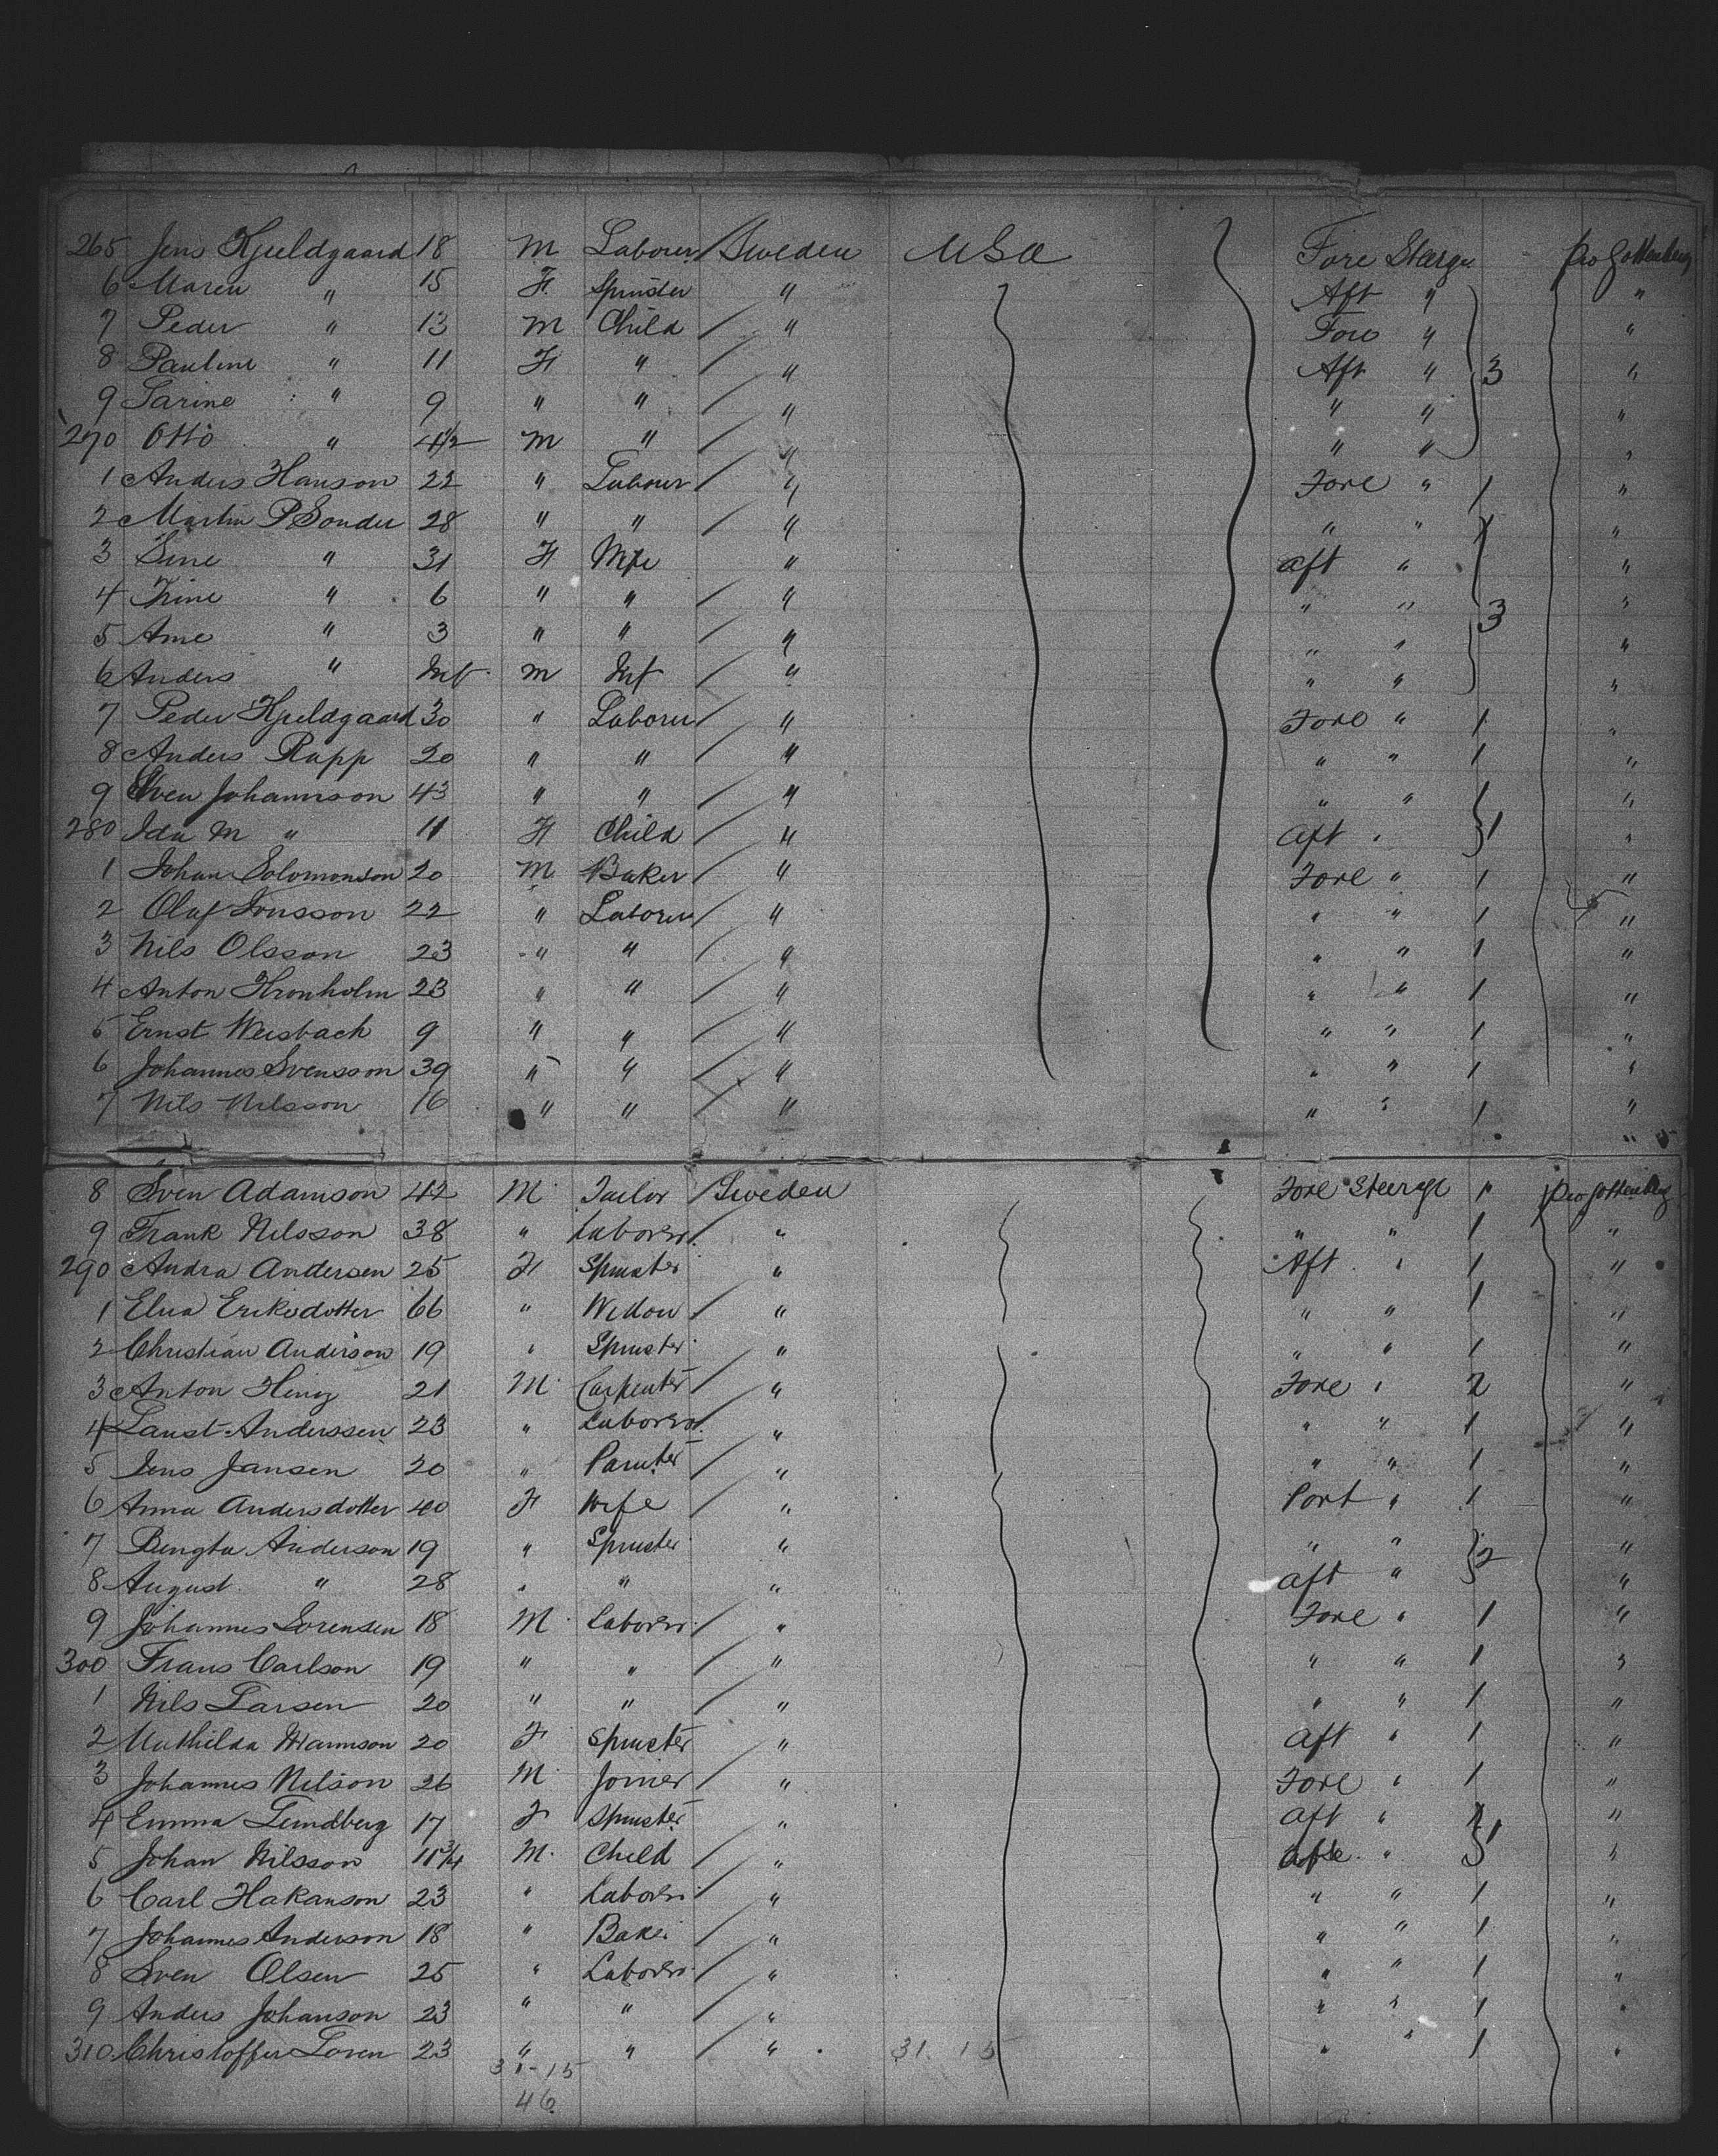 265 Jens Kjeldgaard 18 M Laborer Sweden USA Fore Steerge pro Gottenberg
6 Maren " 15 F Spinster " Aft " "
7 Peder " 13 M Child " Fore " "
8 Pauline " 11 F " " Aft " 3 "
9 Sarine " 9 " " " " " "
270 Otto " 4 1/2 M " " " " "
1 Anders Hanson 22 " Labour " Fore " 1 "
2 Martin P Sonder 28 " " " " " "
3 Sine " 31 F Wife " aft " "
4 Trine " 6 " " " " " 3 "
5 Ane " 3 " " " " " "
6 Anders " Inf m Inf " " " "
7 Peder Kjeldgaard 30 " Laborer " Fore " 1 "
8 Anders Rapp 20 " " " " " 1 "
9 Sven Johannson 43 " " " " " "
280 Ida M " 11 F Child " aft " 1 "
1 Johan Solomonson 20 M Baker " Fore " 1 "
2 Oluf Jonsson 22 " Laborer " " " 1 "
3 Nils Olsson 23 " " " " " 1 "
4 Anton Kronholm 23 " " " " " 1 "
5 Ernst Weisbach 9 " " " " " 1 "
6 Johannes Svensson 39 " " " " " 1 "
7 Nils Nilsson 16 " " " " " 1 "
8 Sven Adamson 42 M Tailor Sweden Fore Steerage 1 pro Gottenberg
9 Frank Nilsson 38 " Laborer " " " 1 "
290 Andra Andersen 25 F Spinster " Aft " 1 "
1 Elna Eriksdotter 66 " Widow " " " 1 "
2 Christian Anderson 19 " Spinster " " " 1 "
3 Anton 21 M Carpenter " Fore " 2 "
4 Laust Anderssen 23 " Laborer " " " 1 "
5 Jens Jansen 20 " Painter " " " 1 "
6 Anna Andersdotter 40 F Wife " Port " 1 "
7 Bengta Anderson 19 " Spinster " " " 2 "
8 August " 28 " " " aft " "
9 Johannes Sorensen 18 M Laborer " Fore " 1 "
300 Frans Carlson 19 " " " " " 1 "
1 Nils Larsen 20 " " " " " 1 "
2 Mathilda Mannson 20 F Spinster " aft " 1 "
3 Johannes Nilson 26 M Joiner " Fore " 1 "
4 Emma Lundberg 17 F Spinster " aft " "
5 Johan Nilsson 11 3/4 M Child " " 1 "
6 Carl Hakanson 23 " Laborer " " " 1 "
7 Johannes Anderson 18 " Baker " " " 1 "
8 Sven Olsen 25 " Laborer " " " 1 "
9 Anders Johanson 23 " " " " " 1 "
310 Christoffer Loren 23 " " " 31. 15 " " 1 "
31-15
46